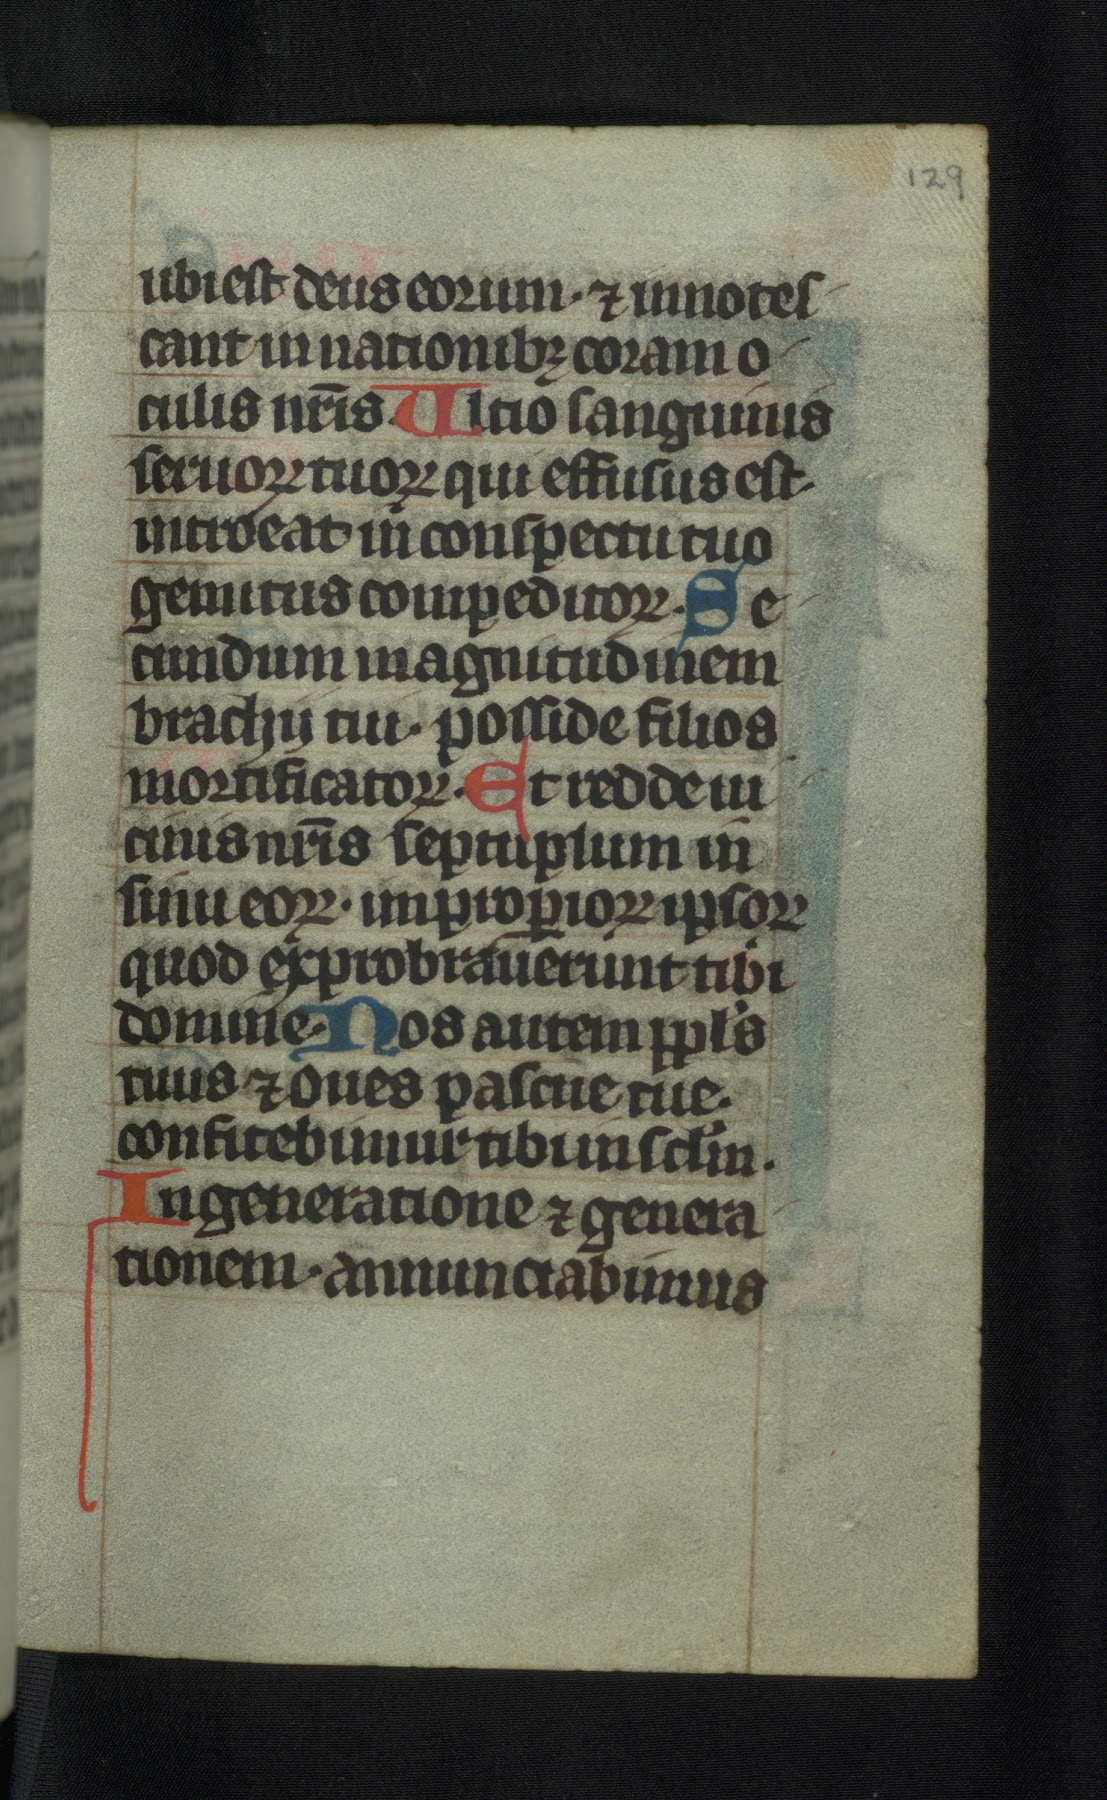 129
ubi est deus eorum · ⁊ innotes
cant in nationibꝫ coram o
culis nr̄is · Ultio sanguinis
seruoꝝ tuoꝝ qui effusus est ·
introeat in conspectu tuo
gemitus compeditoꝝ · Se
cundum magnitudinem
brachij tui · posside filios
mortificatoꝝ · Et redde ui
cinis nr̄is septuplum in
sinu eoꝝ · improperioꝝ ipsoꝝ
quod exprobrauerunt tibi
domine · Nos autem ppl's
tuus ⁊ oues pascue tue ·
confitebimur tibi in scl'm ·
In generatione ⁊ genera
tionem · annunciabimus